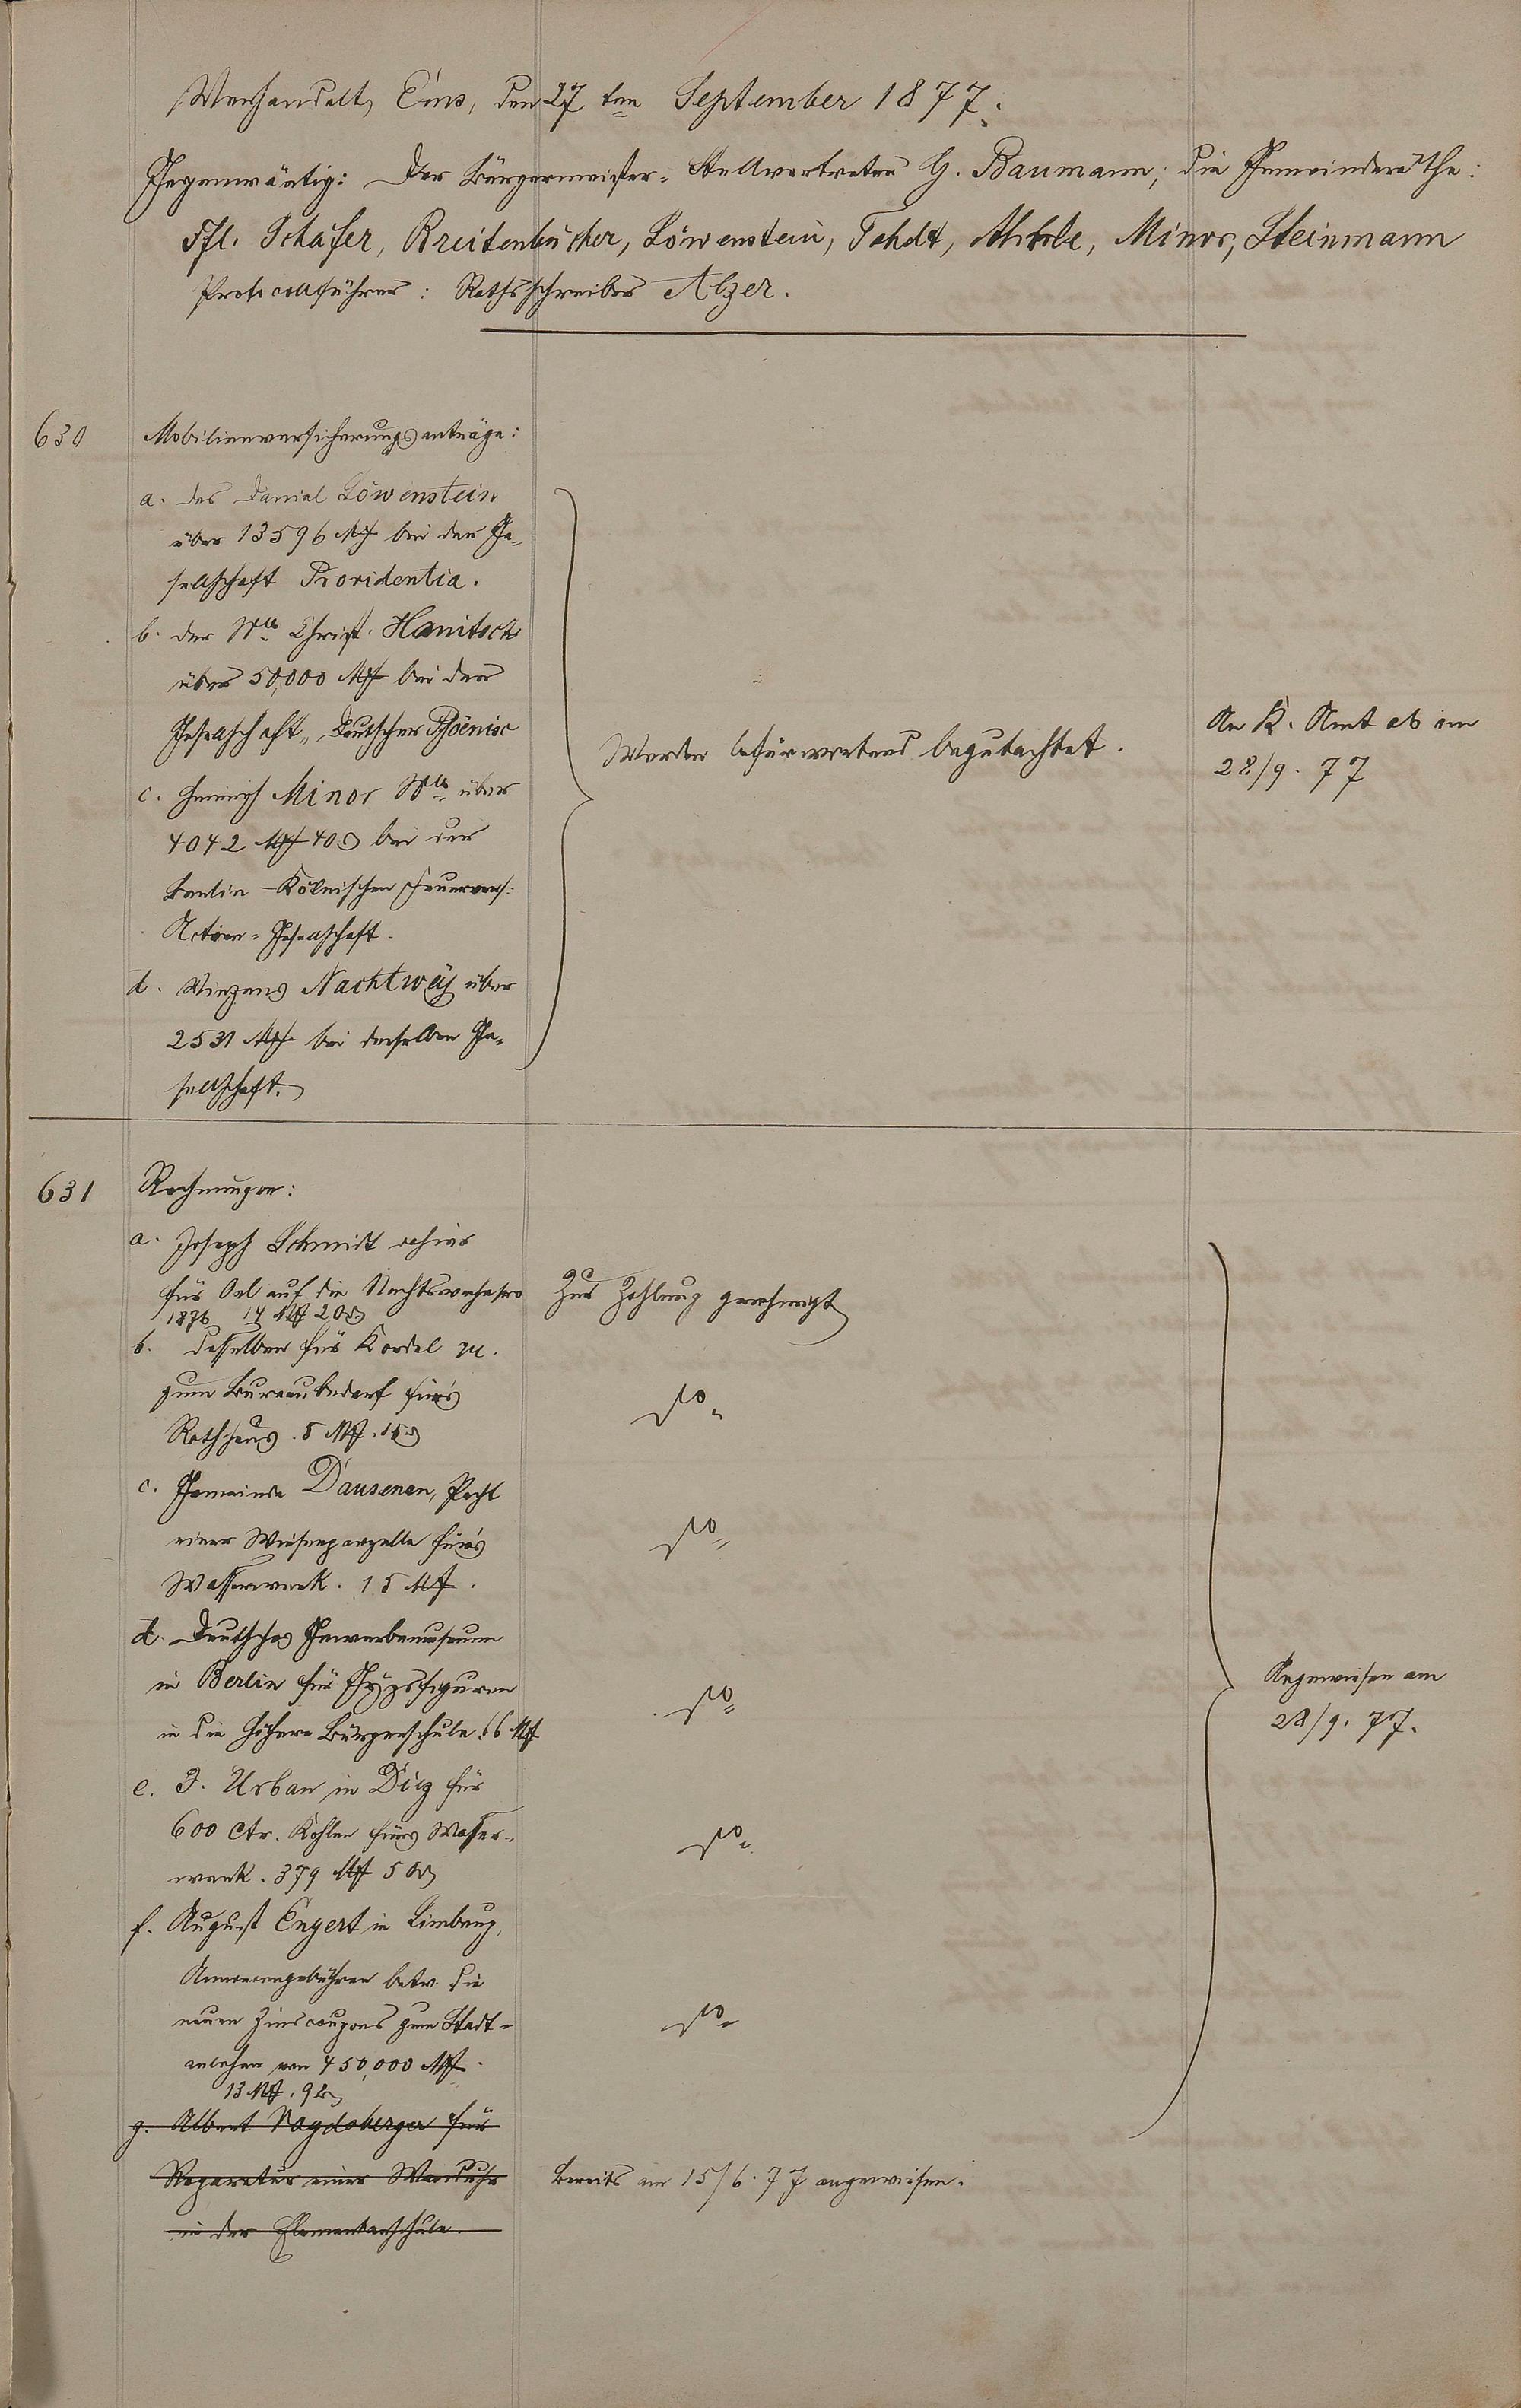 Verhandelt, Ems, den 27ten September 1877.
Gegenwärtig: Der Bürgermeister-Stellvertreter G. Baumann; die Gemeinderäthe:
Schäfer, Breitenbücher, Löwenstein, Minor, Steinmann
Protocollführer: Rathsschreiber Alzer.
630
Mobilienversicherungsanträge:
a. des Daniel Löwenstein
über 13596 M bei der Ge-
sellschaft Providentia.
b. der Wb Christ. Hanitsch
über 50,000 M bei der
Gesellschaft „Deutscher Phoenix
c. Heinrich Minor Wb über
4042 M 40 bei der
Berlin-Kölnischen Feuervers.
Actien-Gesellschaft.
d. Vinzens Nachtweÿ über
2531 M bei derselben Ge-
sellschaft.
Werden befürwortend begutachtet.
An K. Amt ab am
28/9. 77
631
Rechnungen:
a. Joseph Schmidt
für Oel auf die Nachtwache pro
1876 14 M 20
Zur Zahlung genehmigt
b. desselben für Kordel
zum Bureaubedarf für's
Rathhaus. 5 M. 15
do
c. Gemeinde Dausenau, Pacht
einer Wiesenparzelle für's
Wasserwerk. 15 M.
do
d. Deutsches Gewerbemuseum
in Berlin für Gypsfiguren
in die höhere Bürgerschule 66 M
do
e. J. Urban in Diez für
600 Ctr. Kohlen fürs Wasser-
werk. 379 M 50
do
f. August Engert in Limburg,
Annoncengebühren betr. die
neuen Zinscoupons zum Stadt-
anlehen von 450,000 M.
13 M. 92
do
Angewiesen am
28/9. 77.
g. Albert für
Reparatur einer Wanduhr
in der Elementarschule.
Bereits am 15/6. 77 angewiesen.